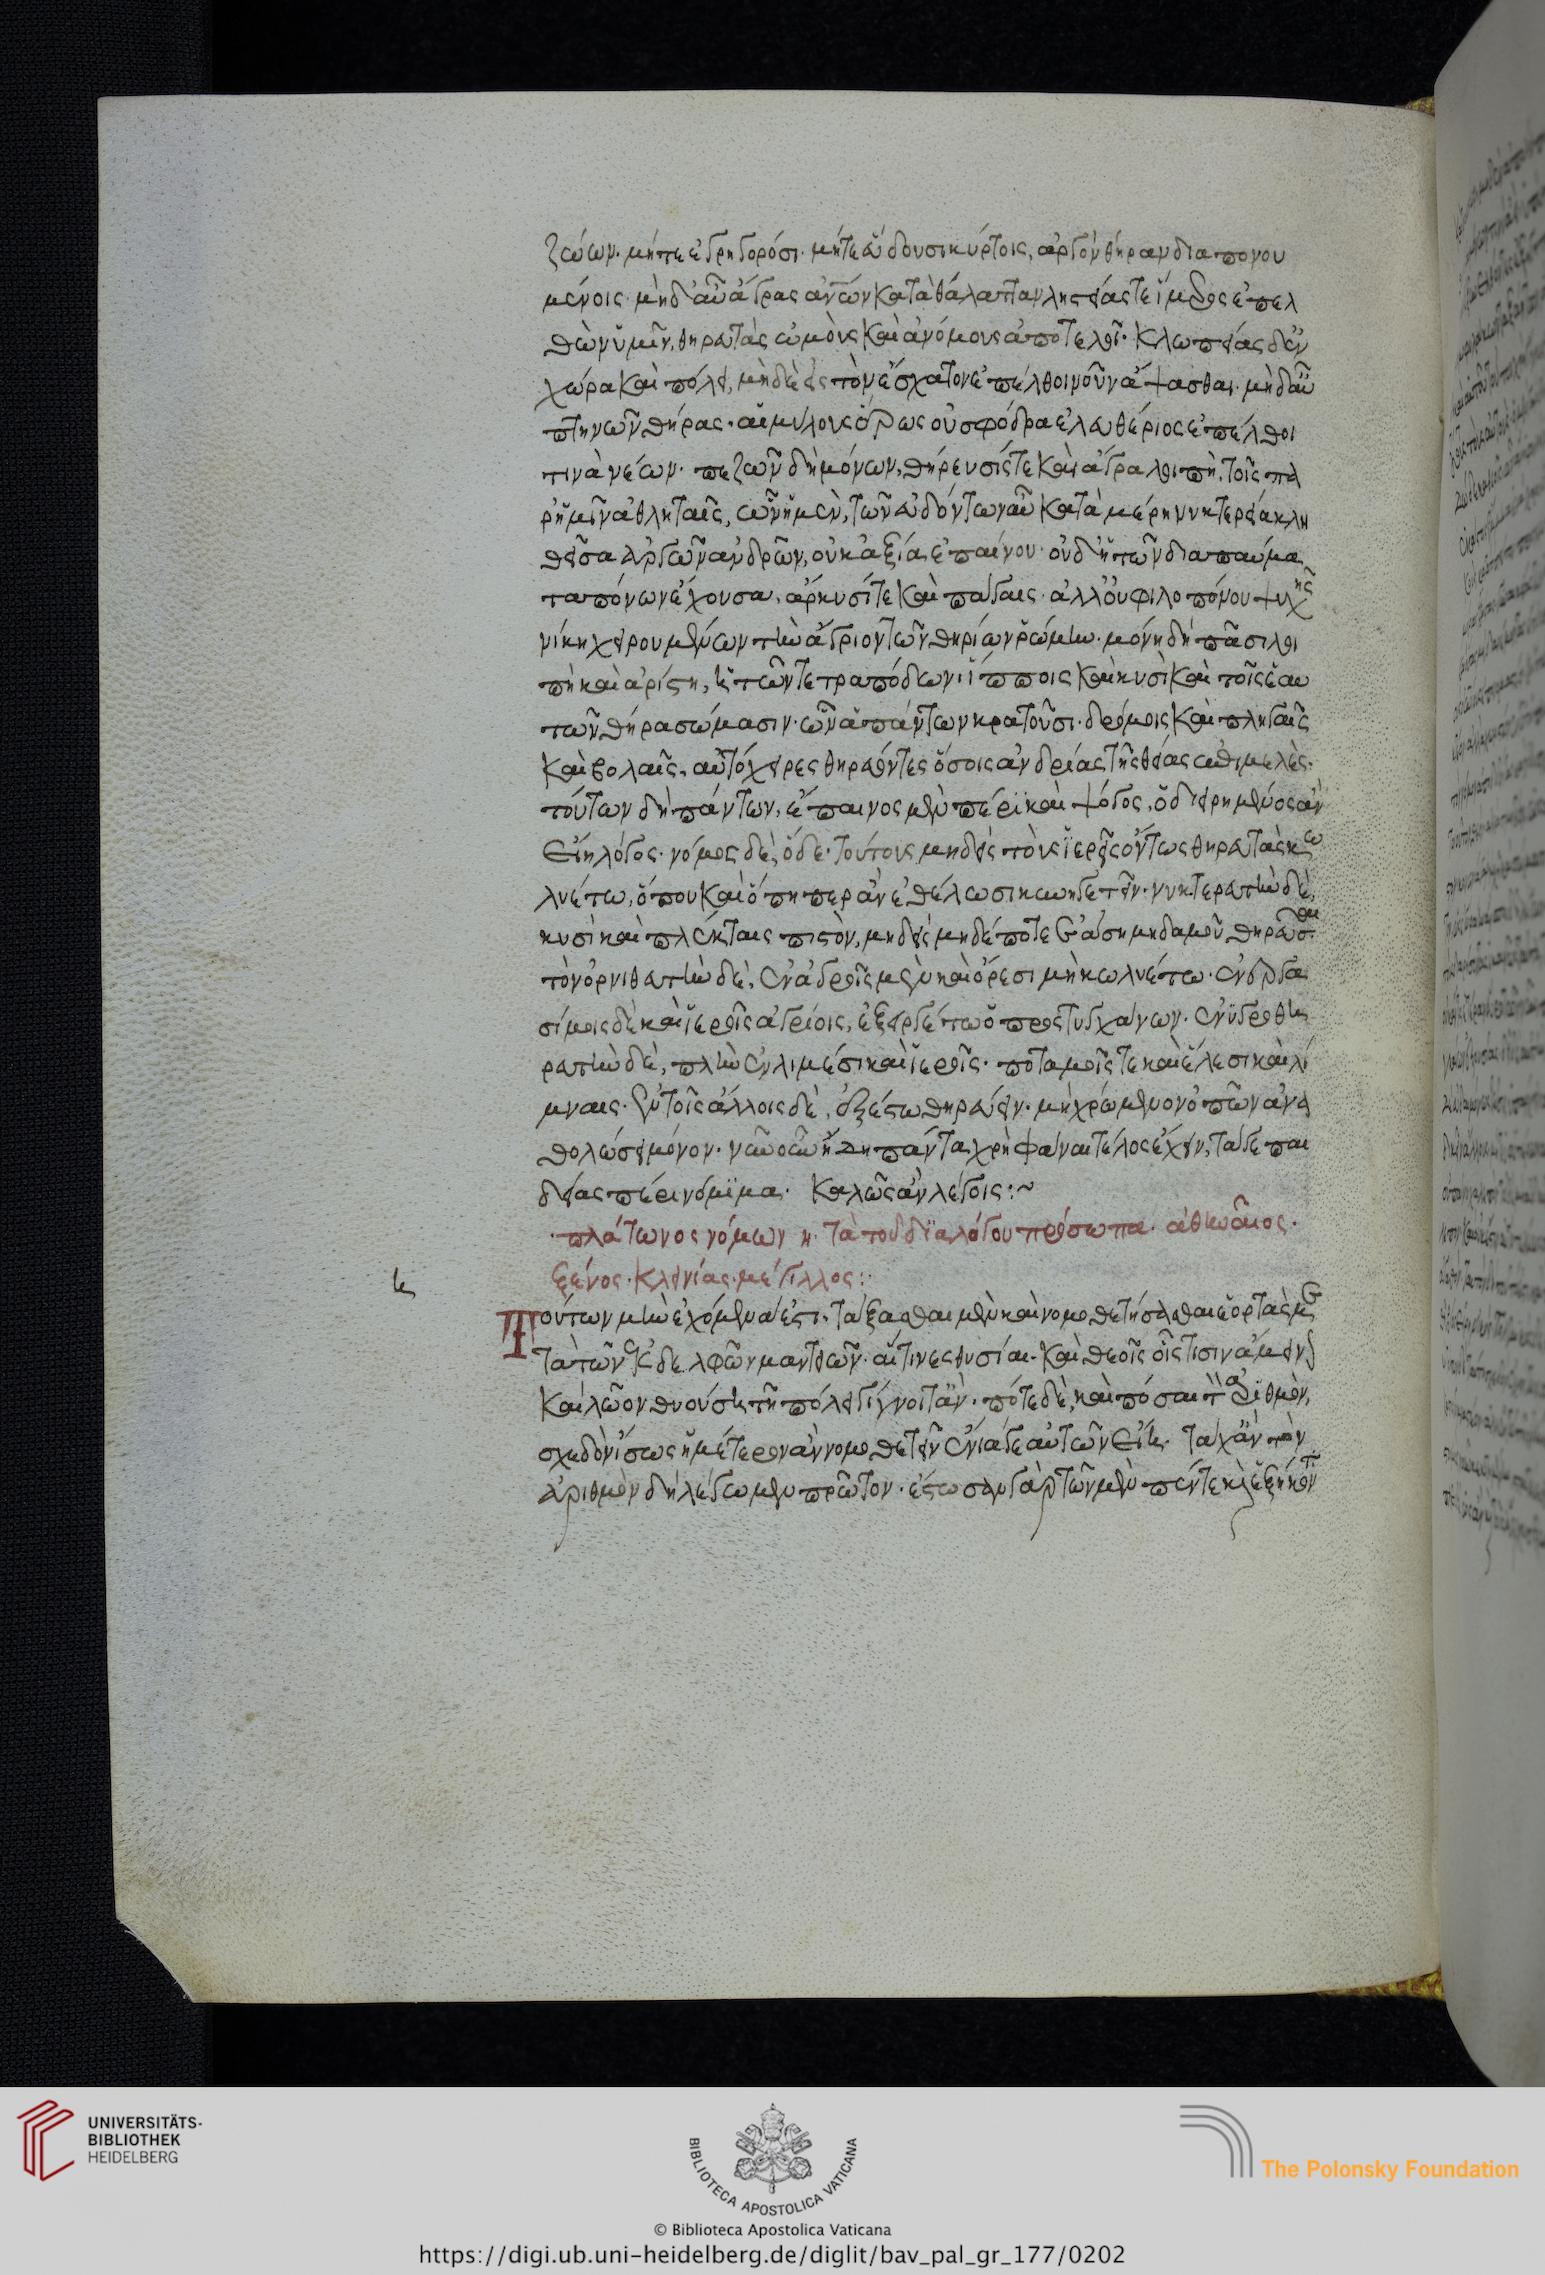 ζώων· μήτε ἐγρηγορόσι· μήτε εὕδουσι κύρτοις, ἀργὸν θήραν διαπονου
μένοις· μὴδ' αὖ ἄγρας ἀνθρώπων κατὰ θάλατταν ληστείας τε ἵμερος ἐπελ
θὼν ὑμῖν, θηρευτὰς ὠμοὺς καὶ ἀνόμους ἀποτελοῖ· κλωπείας δ' ἐν
χώρα καὶ πόλει, μὴδὲ εἰς τὸν ἔσχατον ἐπέλθοι νοῦν ἅψασθαι· μὴδ' αὖ
πτηνῶν θήρας· αἱμύλος ἔρως οὐ σφόδρα ἐλευθέριος ἐπέλθοι
τινὰ νέων· πεζῶν δὴ μόνων, θήρευσίς τε καὶ ἄγρα λοιπὴ, τοῖς πα
ρ' ἡμῖν ἀθληταῖς, ὧν ἡ μὲν, τῶν εὑδόντων αὖ κατὰ μέρη νυκτερεία κλη
θεῖσα ἀργῶν ἀνδρῶν, οὐκ ἀξία ἐπαίνου· οὐδ' ἧττον διαπαύμα
τα πόνων ἔχουσα, ἄρκυσί τε καὶ πάγαις· ἀλλ' οὐ φιλοπόνου ψυχῆς
νίκῃ χειρουμένων τὴν ἄγριον τῶν θηρίων ῥώμην· μόνη δὴ πᾶσι λοι
πὴ καὶ ἀρίστη, ἡ τῶν τετραπόδων ἵπποις καὶ κυσὶ καὶ τοῖς ἑαυ
τῶν θήρα σώμασιν· ὧν ἁπάντων κρατοῦσι· δρόμοις καὶ πληγαῖς
καὶ βολαῖς, αὐτόχειρες θηρεύοντες ὅσοις ἀνδρείας τῆς θείας ἐπιμελὲς·
τούτων δὴ πάντων, ἔπαινος μὲν πέρι καὶ ψόγος, ὁ διειρημένος ἂν
εἴη λόγος· νόμος δὲ, ὅδε· τούτους μηδεὶς τοὺς ἱεροὺς ὄντως θηρευτὰς κω
λυέτω, ὅπου καὶ ὅπη περ ἂν ἐθέλωσι κυνηγετεῖν· νυκτερευτὴν δὲ,
κυσὶ καὶ πλεκταῖς πιστὸν, μηδεὶς μηδέποτε ἐάση μηδαμοῦ θηρεῦσαι·
τὸν ὀρνιθευτὴν δὲ, ἐν ἀγροῖς μὲν καὶ ὄρεσι μὴ κωλυέτω· ἐν ἐργα
σίμοις δὲ καὶ ἱεροῖς ἀγρίοις, ἐξειργέτω ὁ προστυγχάνων· ἐνυγροθη
ρευτὴν δὲ, πλὴν ἐν λιμέσι καὶ ἱεροῖς· ποταμοῖς τε καὶ ἕλεσι καὶ λί
μναις· ἐν τοῖς ἄλλοις δὲ, ἐξέστω θηρεύειν· μὴ χρώμενον ὀπῶν ἀνα
θολώσει μόνον· νῦν οὖν ἤδη πάντα χρὴ φάναι τέλος ἔχειν, τά γε παι
δείας πέρι νόμιμα· καλῶς ἂν λέγοις:~
πλάτωνος νόμων η· τὰ τοῦ διαλόγου πρόσωπα· ἀθηναῖος·
ξένος· κλεινίας· μέγιλλος:
Τούτων μὴν ἐχόμενά ἐστι, τάξασθαι μὲν καὶ νομοθετήσασθαι ἑορτὰς με
τὰ τῶν ἐκ δελφῶν μαντειῶν· αἵτινες θυσίαι· καὶ θεοῖς οἷς τισιν ἄμεινον
καὶ λῷον θυούση τῇ πόλει γίγνοιτ' ἄν· πότε δὲ, καὶ πόσαι τὸν ἀριθμὸν,
σχεδὸν ἴσως ἡμέτερον ἂν νομοθετεῖν ἔνιά γε αὐτῶν εἴη· τάχ' ἂν τὸν
ἀριθμὸν δὴ λέγωμεν πρῶτον· ἔστωσαν γὰρ τῶν μὲν πέντε καὶ ἑξήκοντ
UNIVERSITÄTS-
BIBLIOTHEK
HEIDELBERG
BIBLIOTECA APOSTOLICA VATICANA
The Polonsky Foundation
© Biblioteca Apostolica Vaticana
https://digi.ub.uni-heidelberg.de/diglit/bav_pal_gr_177/0202